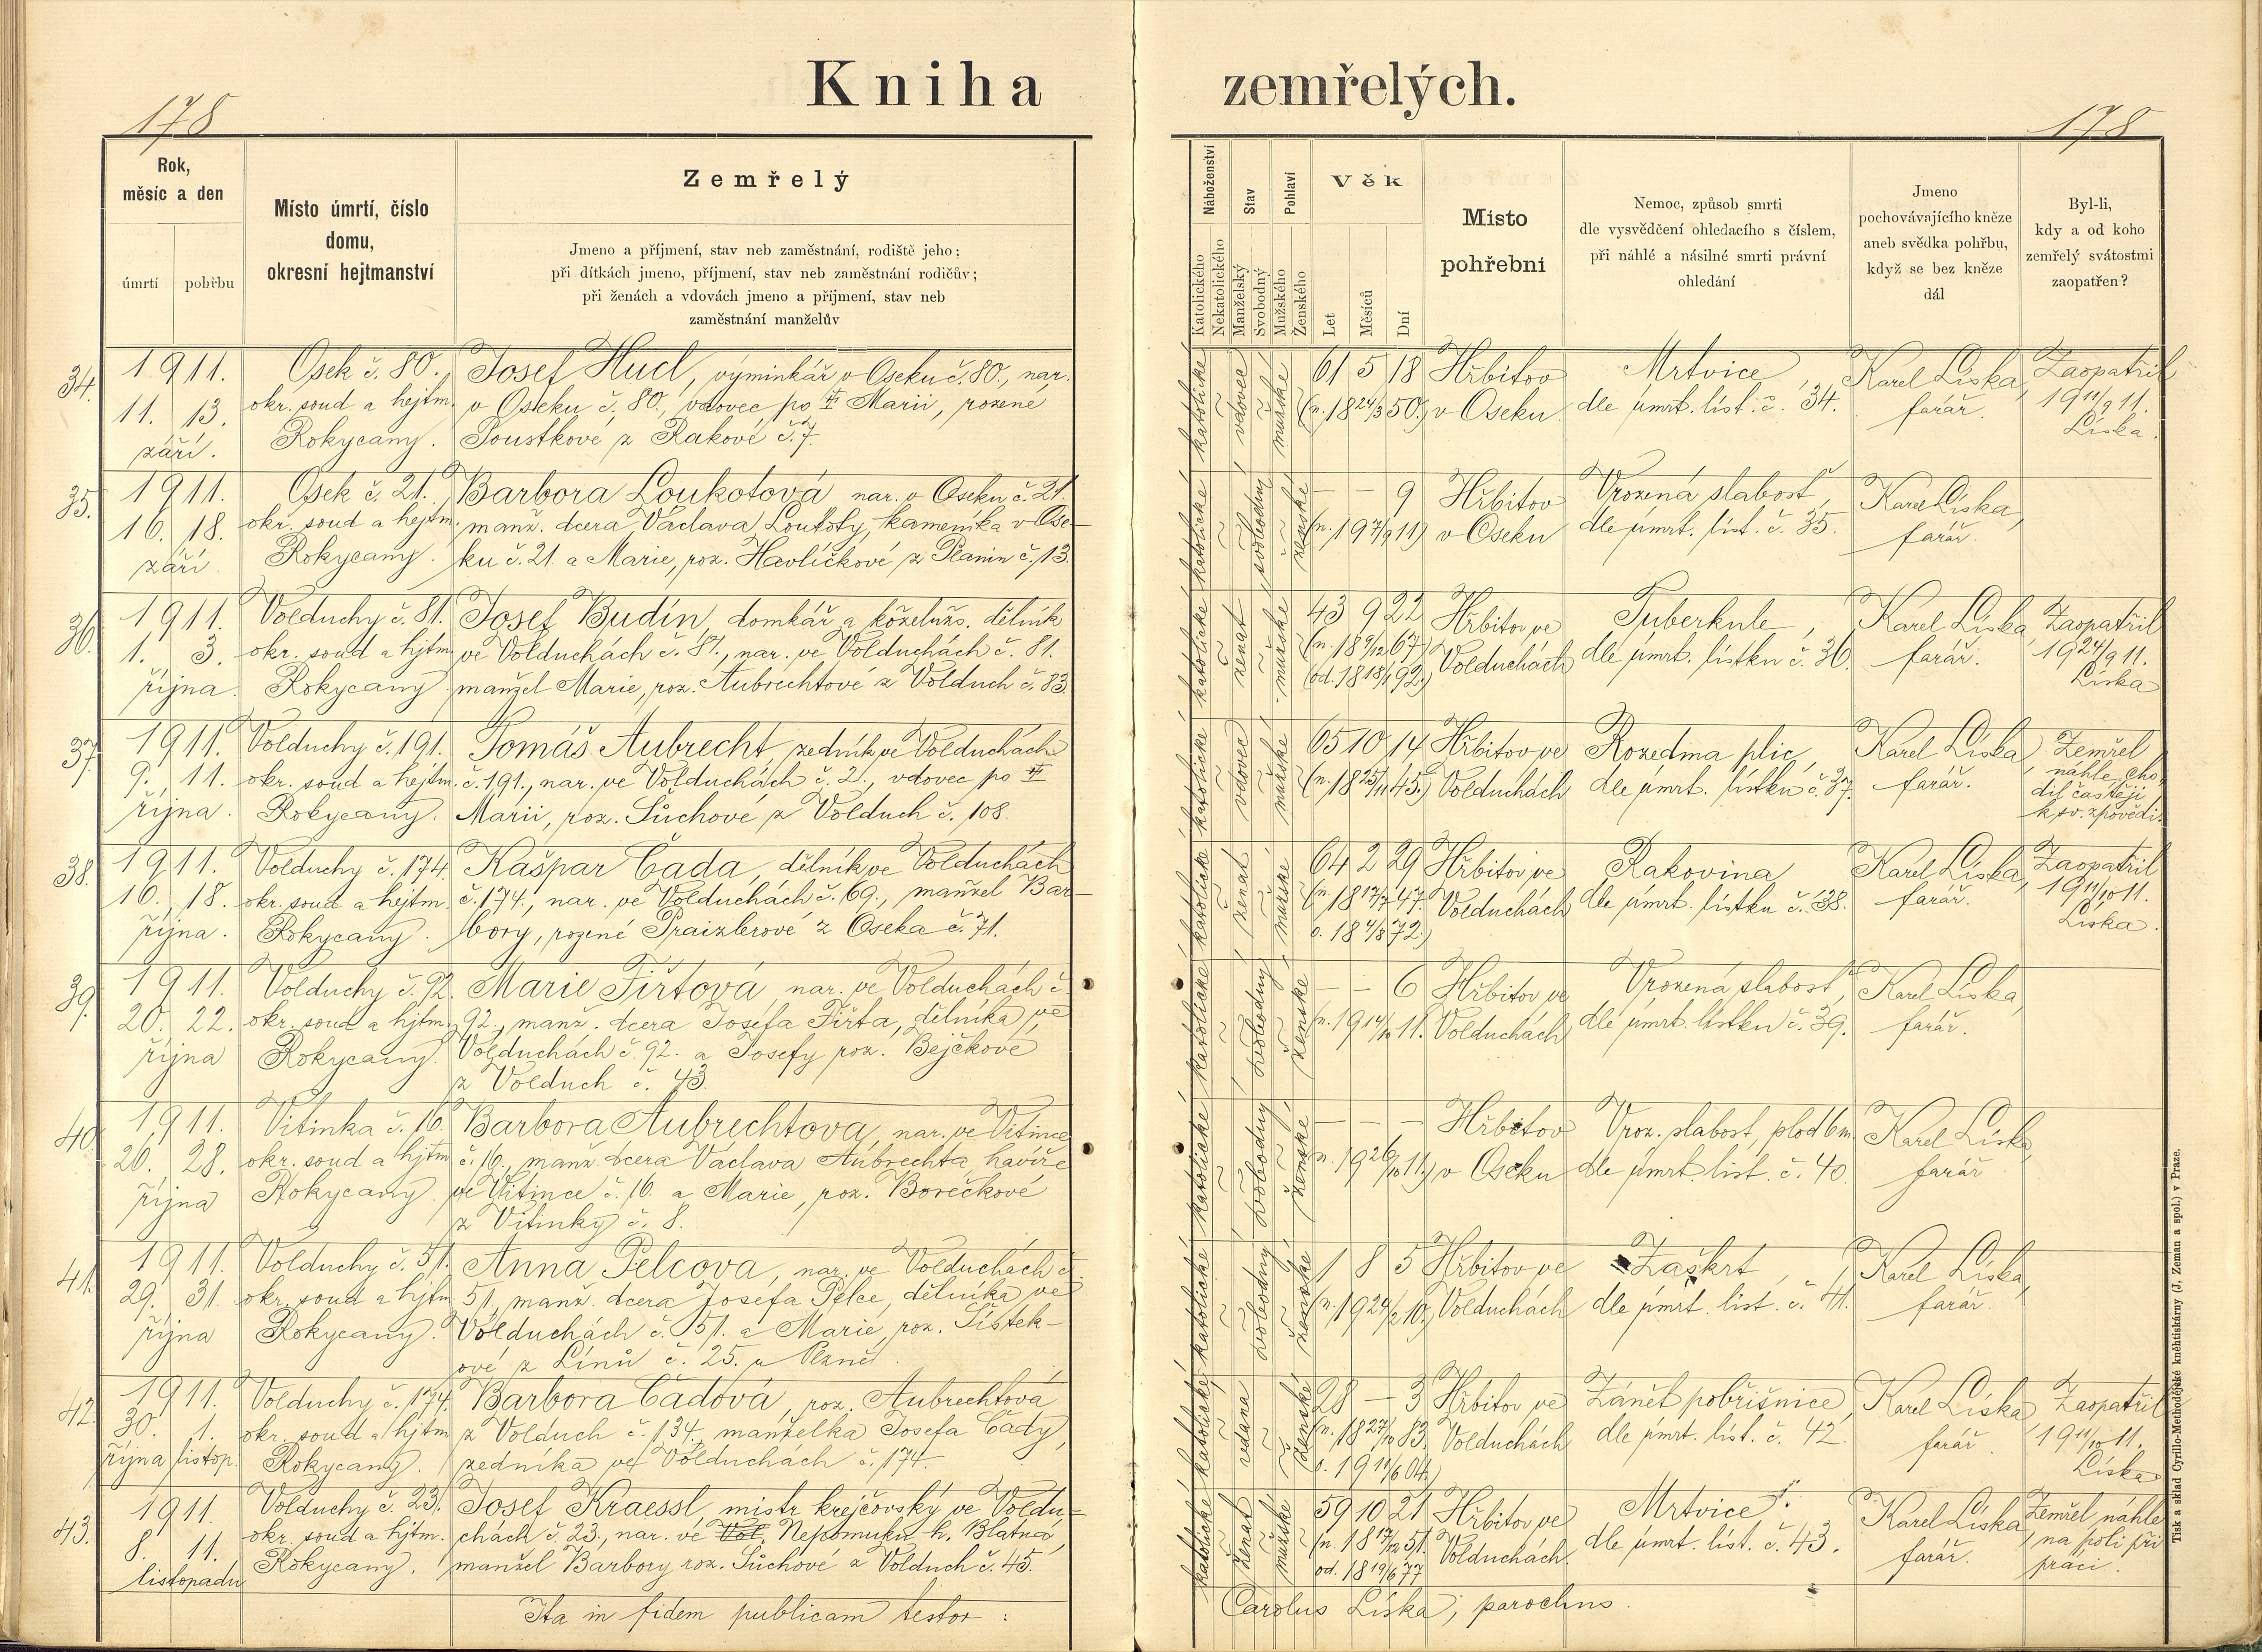 Kniha zemřelých.
178
178
Rok,
měsíc a den
úmrtí
pohřbu
Místo úmrtí, číslo
domu,
okresní hejtmanství
Zemřelý
Jmeno a příjmení, stav neb zaměstnání, rodiště jeho;
při dítkách jmeno, příjmení, stav neb zaměstnání rodičův;
při ženách a vdovách jmeno a příjmení, stav neb
zaměstnání manželův
Náboženství
Katolického
Nekatolického
Stav
Manželský
Svobodný
Pohlaví
Mužského
Ženského
Věk
Let
Měsíců
Dní
Místo
pohřební
Nemoc, způsob smrti
dle vysvědčení ohledacího s číslem,
při náhlé a násilné smrti právní
ohledání
Jmeno
pochovávajícího kněze
aneb svědka pohřbu,
když se bez kněze
dál
Byl-li,
kdy a od koho
zemřelý svátostmi
zaopatřen?
34.
1911.
11. 13.
září.
Osek č. 80.,
okr. soud a hejtm.
Rokycany.
Josef Hucl, výminkář v Oseku č. 80., nar.
v Oseku č. 80., vdovec po II Marii, rozené
Soustkové z Rakové č. 7.
katolické
vdovec
mužské
61 5 18
(n. 18 24/3 50.)
Hřbitov
v Oseku
Mrtvice
dle úmrt. list. č. 34.
Karel Líska,
farář.
Zaopatřil
19 11/9 11.
Líska.
35.
1911.
16. 18.
září.
Osek č. 21.,
okr. soud a hejtm.
Rokycany.
Barbora Loukotová, nar. v Oseku č. 21.
manž. dcera Václava Loukoty, kameníka v Ose-
ku č. 21. a Marie, roz. Havlíčkové z Planin č. 13.
katolické
svobodný
ženské
— — 9
(n. 19 7/9 11)
Hřbitov
v Oseku
Vrozená slabost,
dle úmrt. list. č. 35.
Karel Líska,
farář.
36.
1911.
1. 3.
října.
Volduchy č. 81.
okr. soud a hejtm.
Rokycany
Josef Budín, domkář a koželužs. dělník
ve Volduchách č. 81., nar. ve Volduchách č. 81.
manžel Marie, roz. Aubrechtové z Volduch č. 83.
katolické
ženat
mužské
43 9 22
(n. 18 9/12 67)
(od. 18 18/1 92.)
Hřbitov ve
Volduchách
Tuberkule,
dle úmrt. lístku č. 36.
Karel Líska,
farář.
Zaopatřil
19 24/9 11.
Líska
37.
1911.
9. 11.
října.
Volduchy č. 191.
okr. soud a hejtm.
Rokycany.
Tomáš Aubrecht, zedník ve Volduchách
č. 191., nar. ve Volduchách č. 2., vdovec po II
Marii, roz. Sůchové z Volduch č. 108.
katolické
vdovec
mužské
65 10 14
(n. 18 25/11 45.)
Hřbitov ve
Volduchách
Rozedma plic,
dle úmrt. lístku č. 37.
Karel Líska,
farář.
Zemřel
náhle, cho-
dil častěji
k sv. zpovědi.
38.
1911.
16. 18.
října.
Volduchy č. 174.
okr. soud a hejtm.
Rokycany.
Kašpar Čada, dělník ve Volduchách
č. 174., nar. ve Volduchách č. 69., manžel Bar-
bory, rozené Praizlerové z Oseka č. 71.
katolické
ženat
mužské
64 2 29
(n. 18 17/7 47.
o. 18 4/8 72.)
Hřbitov ve
Volduchách
Rakovina
dle úmrt. lístku č. 38.
Karel Líska,
farář.
Zaopatřil
19 11/10 11.
Líska.
39.
1911.
20. 22.
října
Volduchy č. 92.
okr. soud a hjtm.
Rokycany.
Marie Fiřtová, nar. ve Volduchách č.
92., manž. dcera Josefa Fiřta, dělníka ve
Volduchách č. 92. a Josefy roz. Bejčkové
z Volduch č. 43.
katolické
svobodný
ženské
— — 6
n. 19 14/10 11.
Hřbitov ve
Volduchách
Vrozená slabost,
dle úmrt. lístku č. 39.
Karel Líska,
farář.
40.
1911.
26. 28.
října
Vitinka č. 16.
okr. soud a hejtm.
Rokycany
Barbora Aubrechtova, nar. ve Vitince
č. 16., manž. dcera Václava Aubrechta, havíře
ve Vitince č. 16. a Marie, roz. Borečkové
z Vitinky č. 8.
katolické
svobodný
ženské
— — —
n. 19 26/10 11.)
Hřbitov
v Oseku
Vroz. slabost, plod 6 m.
dle úmrt. list. č. 40.
Karel Líska,
farář
41.
1911.
29. 31.
října
Volduchy č. 51.
okr. soud a hjtm.
Rokycany.
Anna Pelcova, nar. ve Volduchách č.
51., manž. dcera Josefa Pelce, dělníka ve
Volduchách č. 51. a Marie, roz. Šístek-
ové z Línů č. 25. u Plzně.
katolické
svobodný
ženské
1 8 5
(n. 19 24/2 10.)
Hřbitov ve
Volduchách
Zaškrt,
dle úmrt. list. č. 41.
Karel Líska,
farář.
42.
1911.
30. 1.
října listop.
Volduchy č. 174.
okr. soud a hjtm.
Rokycany.
Barbora Čadová, roz. Aubrechtová
z Volduch č. 134., manželka Josefa Čady,
zedníka ve Volduchách č. 174.
katolické
vdana
ženské
28 — 3
(n. 18 27/10 83.
o. 19 11/6 04.)
Hřbitov ve
Volduchách
Zánět pobřišnice,
dle úmrt. list. č. 42.
Karel Líska,
farář.
Zaopatřil
19 11/10 11.
Líska
43.
1911.
8. 11.
listopadu
Volduchy č. 23.
okr. soud a hjtm.
Rokycany.
Josef Kraessl, mistr krejčovský ve Voldu-
chách č. 23., nar. ve Vol. Nepomuku h. Blatná,
manžel Barbory roz. Sůchové z Volduch č. 45.
katolické
ženat
mužské
59 10 21
(n. 18 17/12 51.
od. 18 19/6 77
Hřbitov ve
Volduchách.
Mrtvice
dle úmrt. list. č. 43.
Karel Líska,
farář.
Zemřel náhle
na poli při
práci.
Ita in fidem publicam testor:
Carolus Líska, parochus.
Tisk a sklad Cyrillo-Methodějské knihtiskárny (J. Zeman a spol.) v Praze.